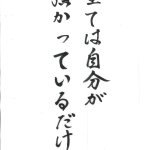 全ては自分が
かっているだけ